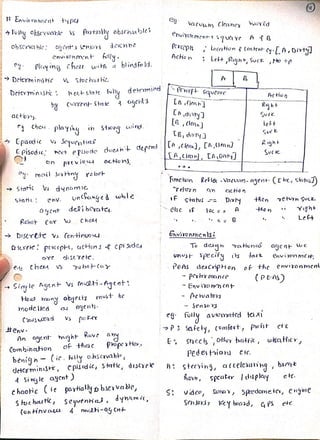 # Environment types
→ Fully observable vs Partially observable:
observable: agent's sensors describe
environment fully.
eg. Playing chess with a blindfold.
→ Deterministic vs Stochastic
Deterministic: next state fully determined
by current state & agent's
action.
eg chess playing in strong wind.
→ Episodic vs Sequential
Episodic: next episode doesn't depend
on previous actions.
eg. mail sorting robot
→ Static vs dynamic
static: env. unchanged while
agent deliberates
Robot car vs chess
→ Discrete vs Continuous
Discrete: percepts, actions & episodes
are discrete.
eg chess vs robot car
→ Single Agent vs multi-Agent:
How many objects must be
modelled as agents.
Crossword vs poker
# Env.
An agent might have any
combination of these properties,
benign - (ie. fully observable,
deterministic, episodic, static, discrete
& single agent)
chaotic (ie partially observable,
stochastic, sequential, dynamic,
continuous & multi-agent
eg vacuum cleaner world
environment: square A & B
percept: location & content eg. [A, Dirty]
Action: left, Right, suck, No op
A B
Percept sequence Action
[A, clean] Right
[A, dirty] Suck
[B, clean] left
[B, dirty] Suck
[A, clean], [A, clean] Right
[A, clean], [A, Dirty] Suck
...
Function Reflex-vacuum-agent ([loc, status])
return an action
if status == Dirty then return suck
else if loc == A then right
" " == B " left
Environments:
To design rational agent we
must specify its task environment
PEAS description of the environment
- Performance (PEAS)
- Environment
- Actuators
- Sensors
eg. fully automated taxi
→ P: Safety, comfort, profit etc
E: streets, other traffic, weather,
pedestrians etc.
A: steering, accelerating, brake
horn, speaker / display etc.
S: video, sonar, speedometer, engine
sensors keyboard, GPS etc.